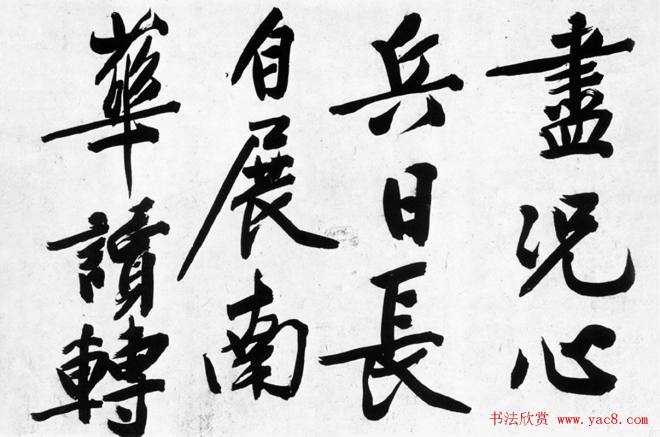 盡况心
兵日長
自展南
華讀轉
书法欣赏 www.yac8.com